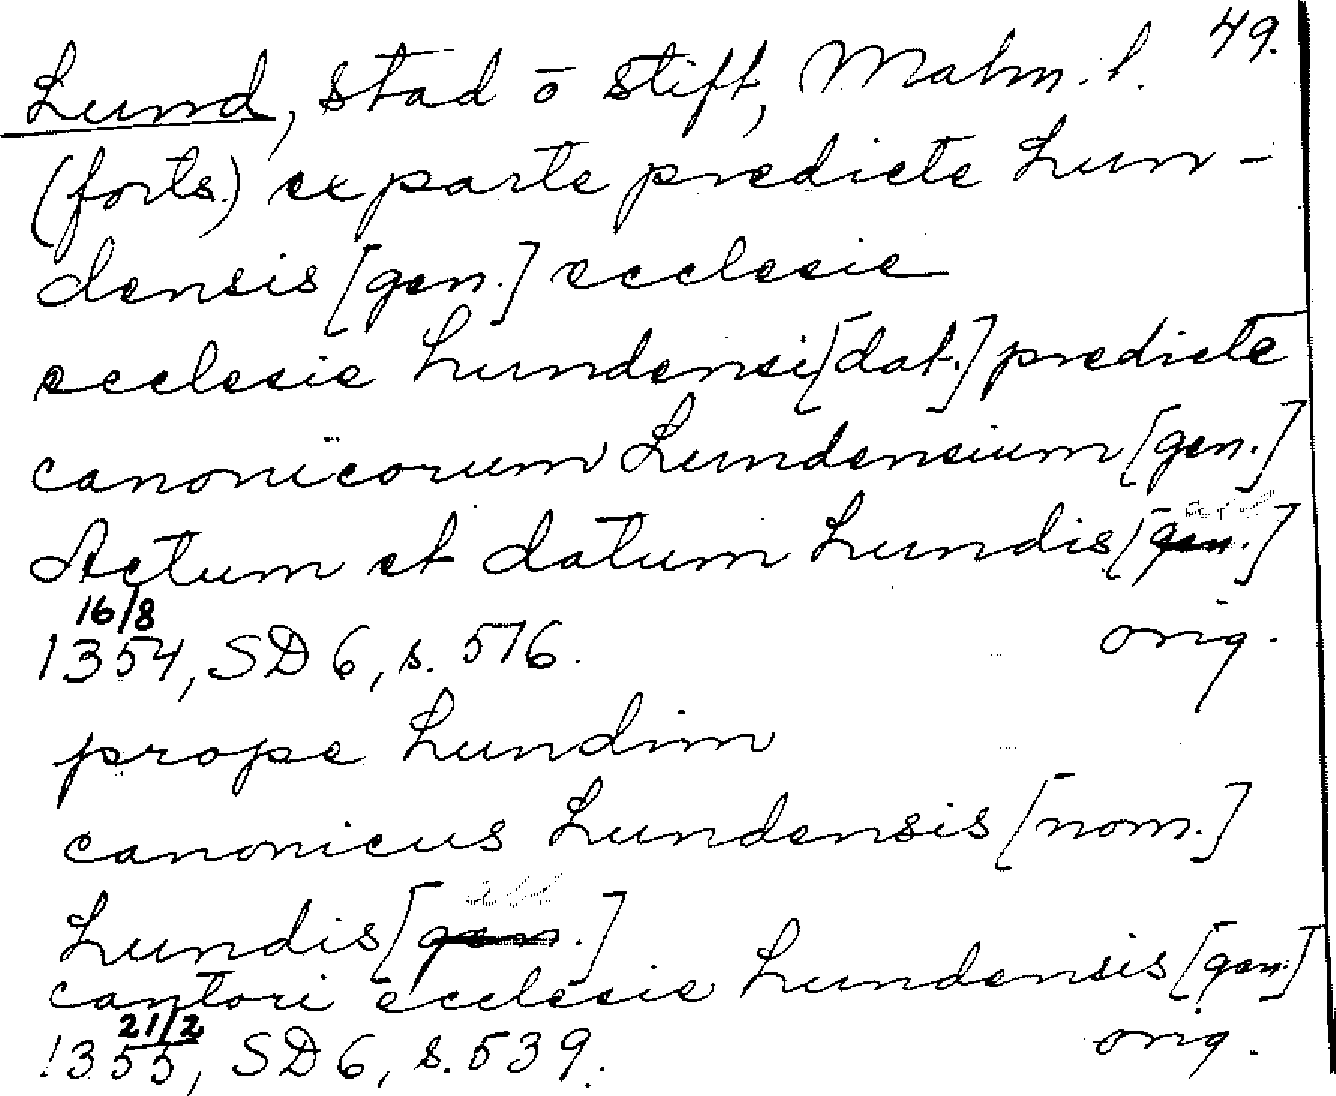 49.
Lund, stad o stift, Malm. l.
(forts.) ex parte predicte Lun-
densis [gen.] ecclesie
ecclesie Lundensi [dat.] predicte
canonicorum Lundensium [gen.]
Actum et datum Lundis [gen.]
16/8
1354, SD 6, s. 516. orig.
prope Lundim
canonicus Lundensis [nom.]
abl
Lundis [gen.]
cantori ecclesie Lundensis [gen.]
21/2
1355, SD 6, s. 539. orig.